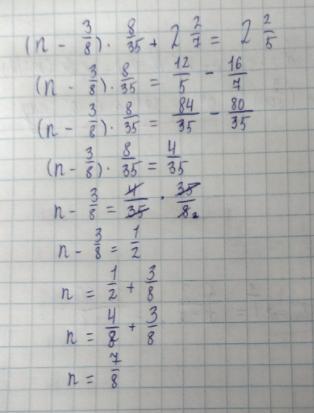 (n - 3/8) · 8/35 + 2 2/7 = 2 2/5
(n - 3/8) · 8/35 = 12/5 - 16/7
(n - 3/8) · 8/35 = 84/35 - 80/35
(n - 3/8) · 8/35 = 4/35
n - 3/8 = 4/35 · 35/8 2
n - 3/8 = 1/2
n = 1/2 + 3/8
n = 4/8 + 3/8
n = 7/8